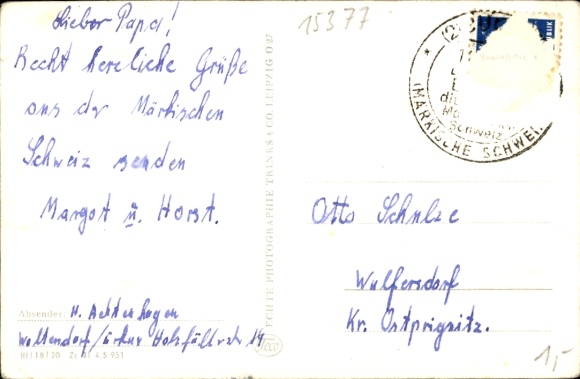 Lieber Papa!
Recht herzliche Grüße
aus der Märkischen
Schweiz senden
Margot u. Horst.
Absender: H. Achterhagen
Woltersdorf/Erkner
III/18/20
ECHTE PHOTOGRAPHIE TRINKS & CO. LEIPZIG O 27
15377
(2)
MÄRKISCHE SCHWEIZ
Schweiz
Otto Schulze
Wulfersdorf
Kr. Ostprignitz.
1,-